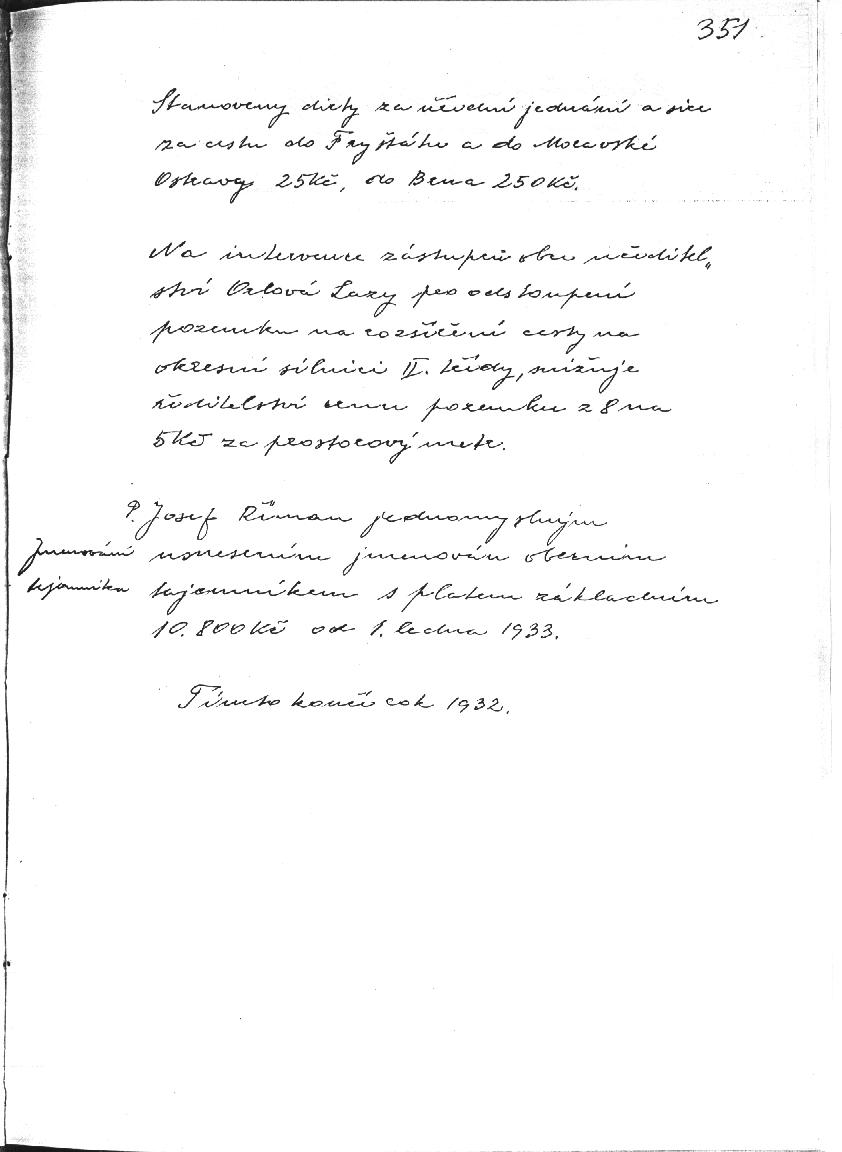 351
Stanoveny diety za úřední jednání a sice
za cestu do Fryštátu a do Moravské
Ostravy 25Kč, do Brna 250Kč.
Na intervence zástupců obce ředitel„
ství Orlová Lazy pro odstoupení
pozemku na rozšíření cesty na
okresní silnici II. třídy, snižuje
ředitelství cenu pozemku z 8 na
5Kč za prostorový metr.
P. Josef Říman jednomyslným
Jmenování
usnesením jmenován obecním
tajemníka
tajemníkem s platem základním
10.800Kč od 1. ledna 1933.
Tímto končí rok 1932.